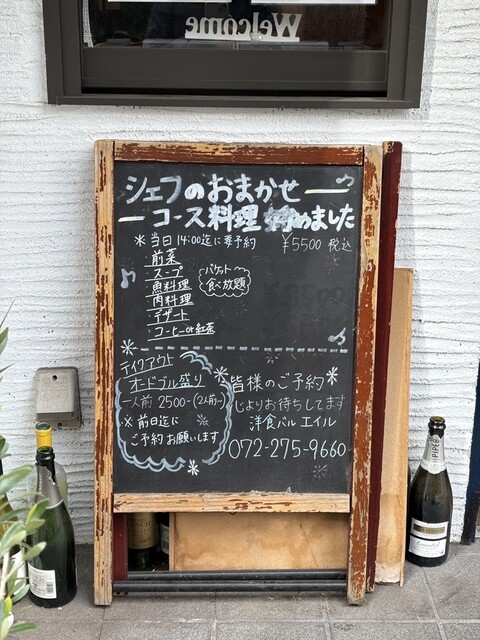 Welcome
シェフのおまかせ
コース料理 始めました
＊当日14:00迄に要予約 ¥5500 税込
前菜
スープ
魚料理
肉料理
デザート
コーヒーor紅茶
バケット
食べ放題
テイクアウト
オードブル盛り
一人前 2500-(2人前〜)
※ 前日迄に
ご予約お願いします
皆様のご予約
心よりお待ちしてます
洋食バル エイル
072-275-9660
PIPER